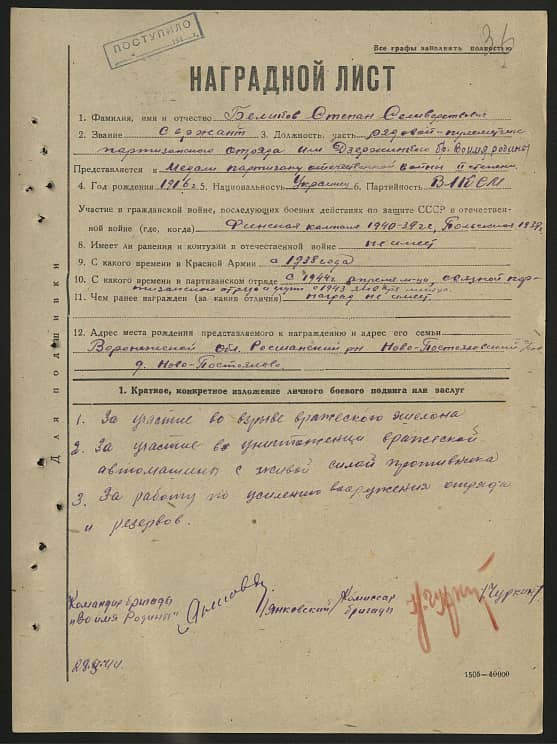 ПОСТУПИЛО
Все графы заполнять полностью
НАГРАДНОЙ ЛИСТ
1. Фамилия, имя и отчество Белитов Степан Селиверстович
2. Звание сержант 3. Должность, часть рядовой-пулеметчик
партизанского отряда им. Дзержинского бр. Во имя родины
Представляется к Медали партизану отечественной войны II степени
4. Год рождения 1916 г. 5. Национальность Украинец 6. Партийность ВЛКСМ
Участие в гражданской войне, последующих боевых действиях по защите СССР и отечествен-
ной войне (где, когда) Финская кампания 1940-39 г.г., Польская 1939.
8. Имеет ли ранения и контузии в отечественной войне не имеет
9. С какого времени в Красной Армии с 1938 года
10. С какого времени в партизанском отряде с 1944 г. связной пар-
тизанского отряда с 1943
11. Чем ранее награжден (за какие отличия) наград не имеет.
12. Адрес места рождения представляемого к награждению и адрес его семьи
Воронежской обл. Росшанский рн Ново-Постояловский
д. Ново-Постоялово.
Для подшивки
1. Краткое, конкретное изложение личного боевого подвига или заслуг
1. За участие во взрыве вражеского эшелона
2. За участие во уничтожении вражеской
автомашины с живой силой противника
3. За работу по усилению вооружения отряда
и резервов.
Командир бригады
"Во имя Родины" /Янковский/
Комиссар
бригады /Чуркин/
1505—40000